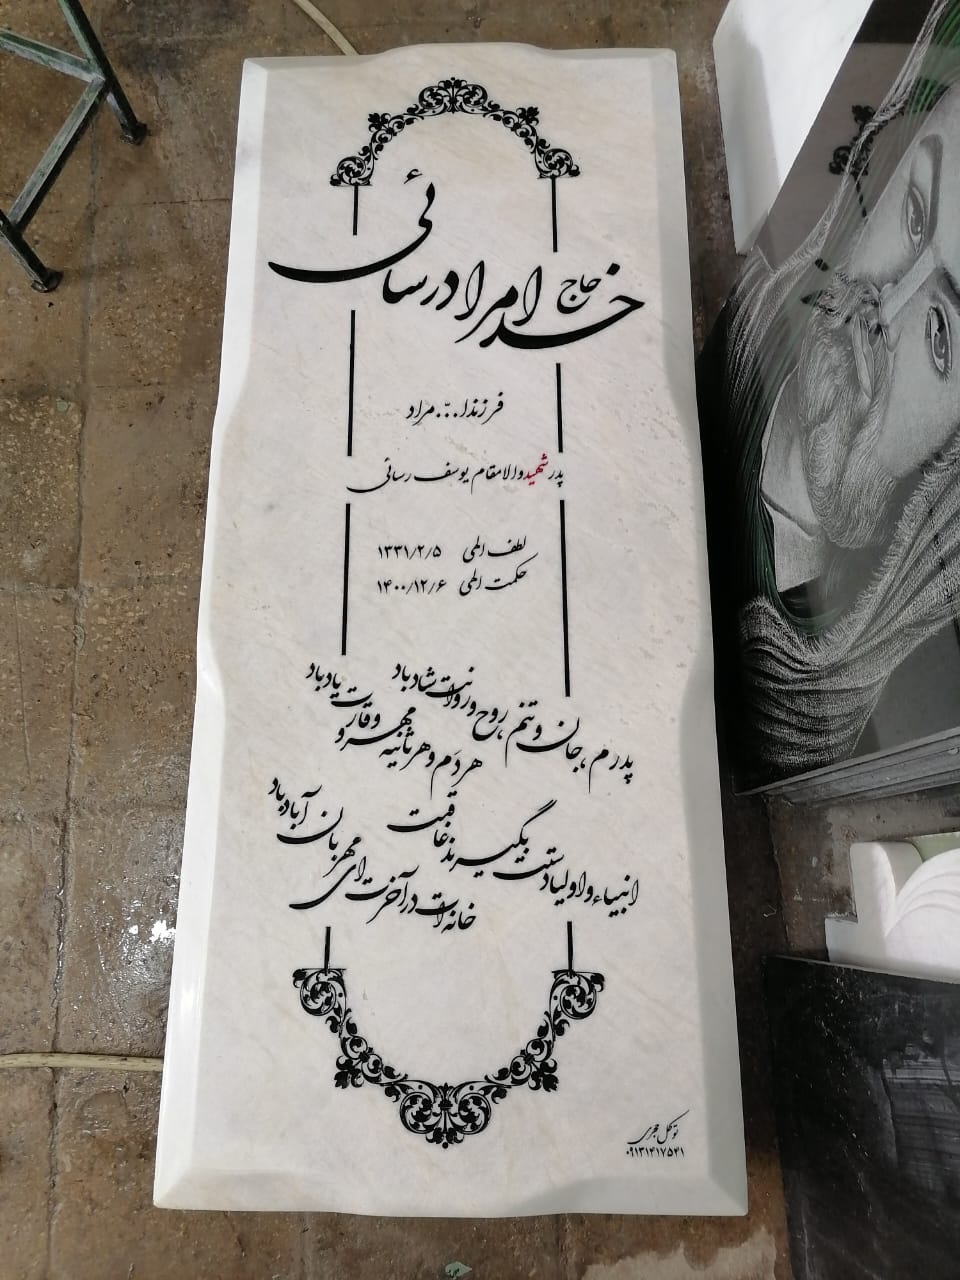 حاج
خدامراد رسائی
فرزند ا... مراد
پدر شهید والامقام یوسف رسائی
لطف الهی ۱۳۳۱/۲/۵
حکمت الهی ۱۴۰۰/۱۲/۶
پدرم، جان و تنم، روح و روانت شاد باد
هر دَم و هر ثانیه مهر و وقارت یاد باد
انبیاء و اولیا دستت بگیرند عاقبت
خانه ات در آخرت ای مهربان آباد باد
توکل حجری
۰۹۱۳۱۴۱۷۵۴۱